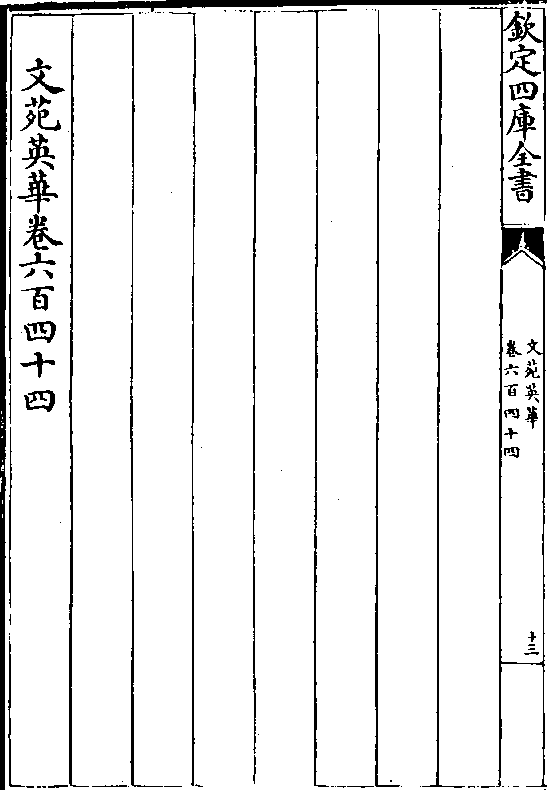 欽定四庫全書
文苑英華
卷六百四十四
十三
文苑英華卷六百四十四